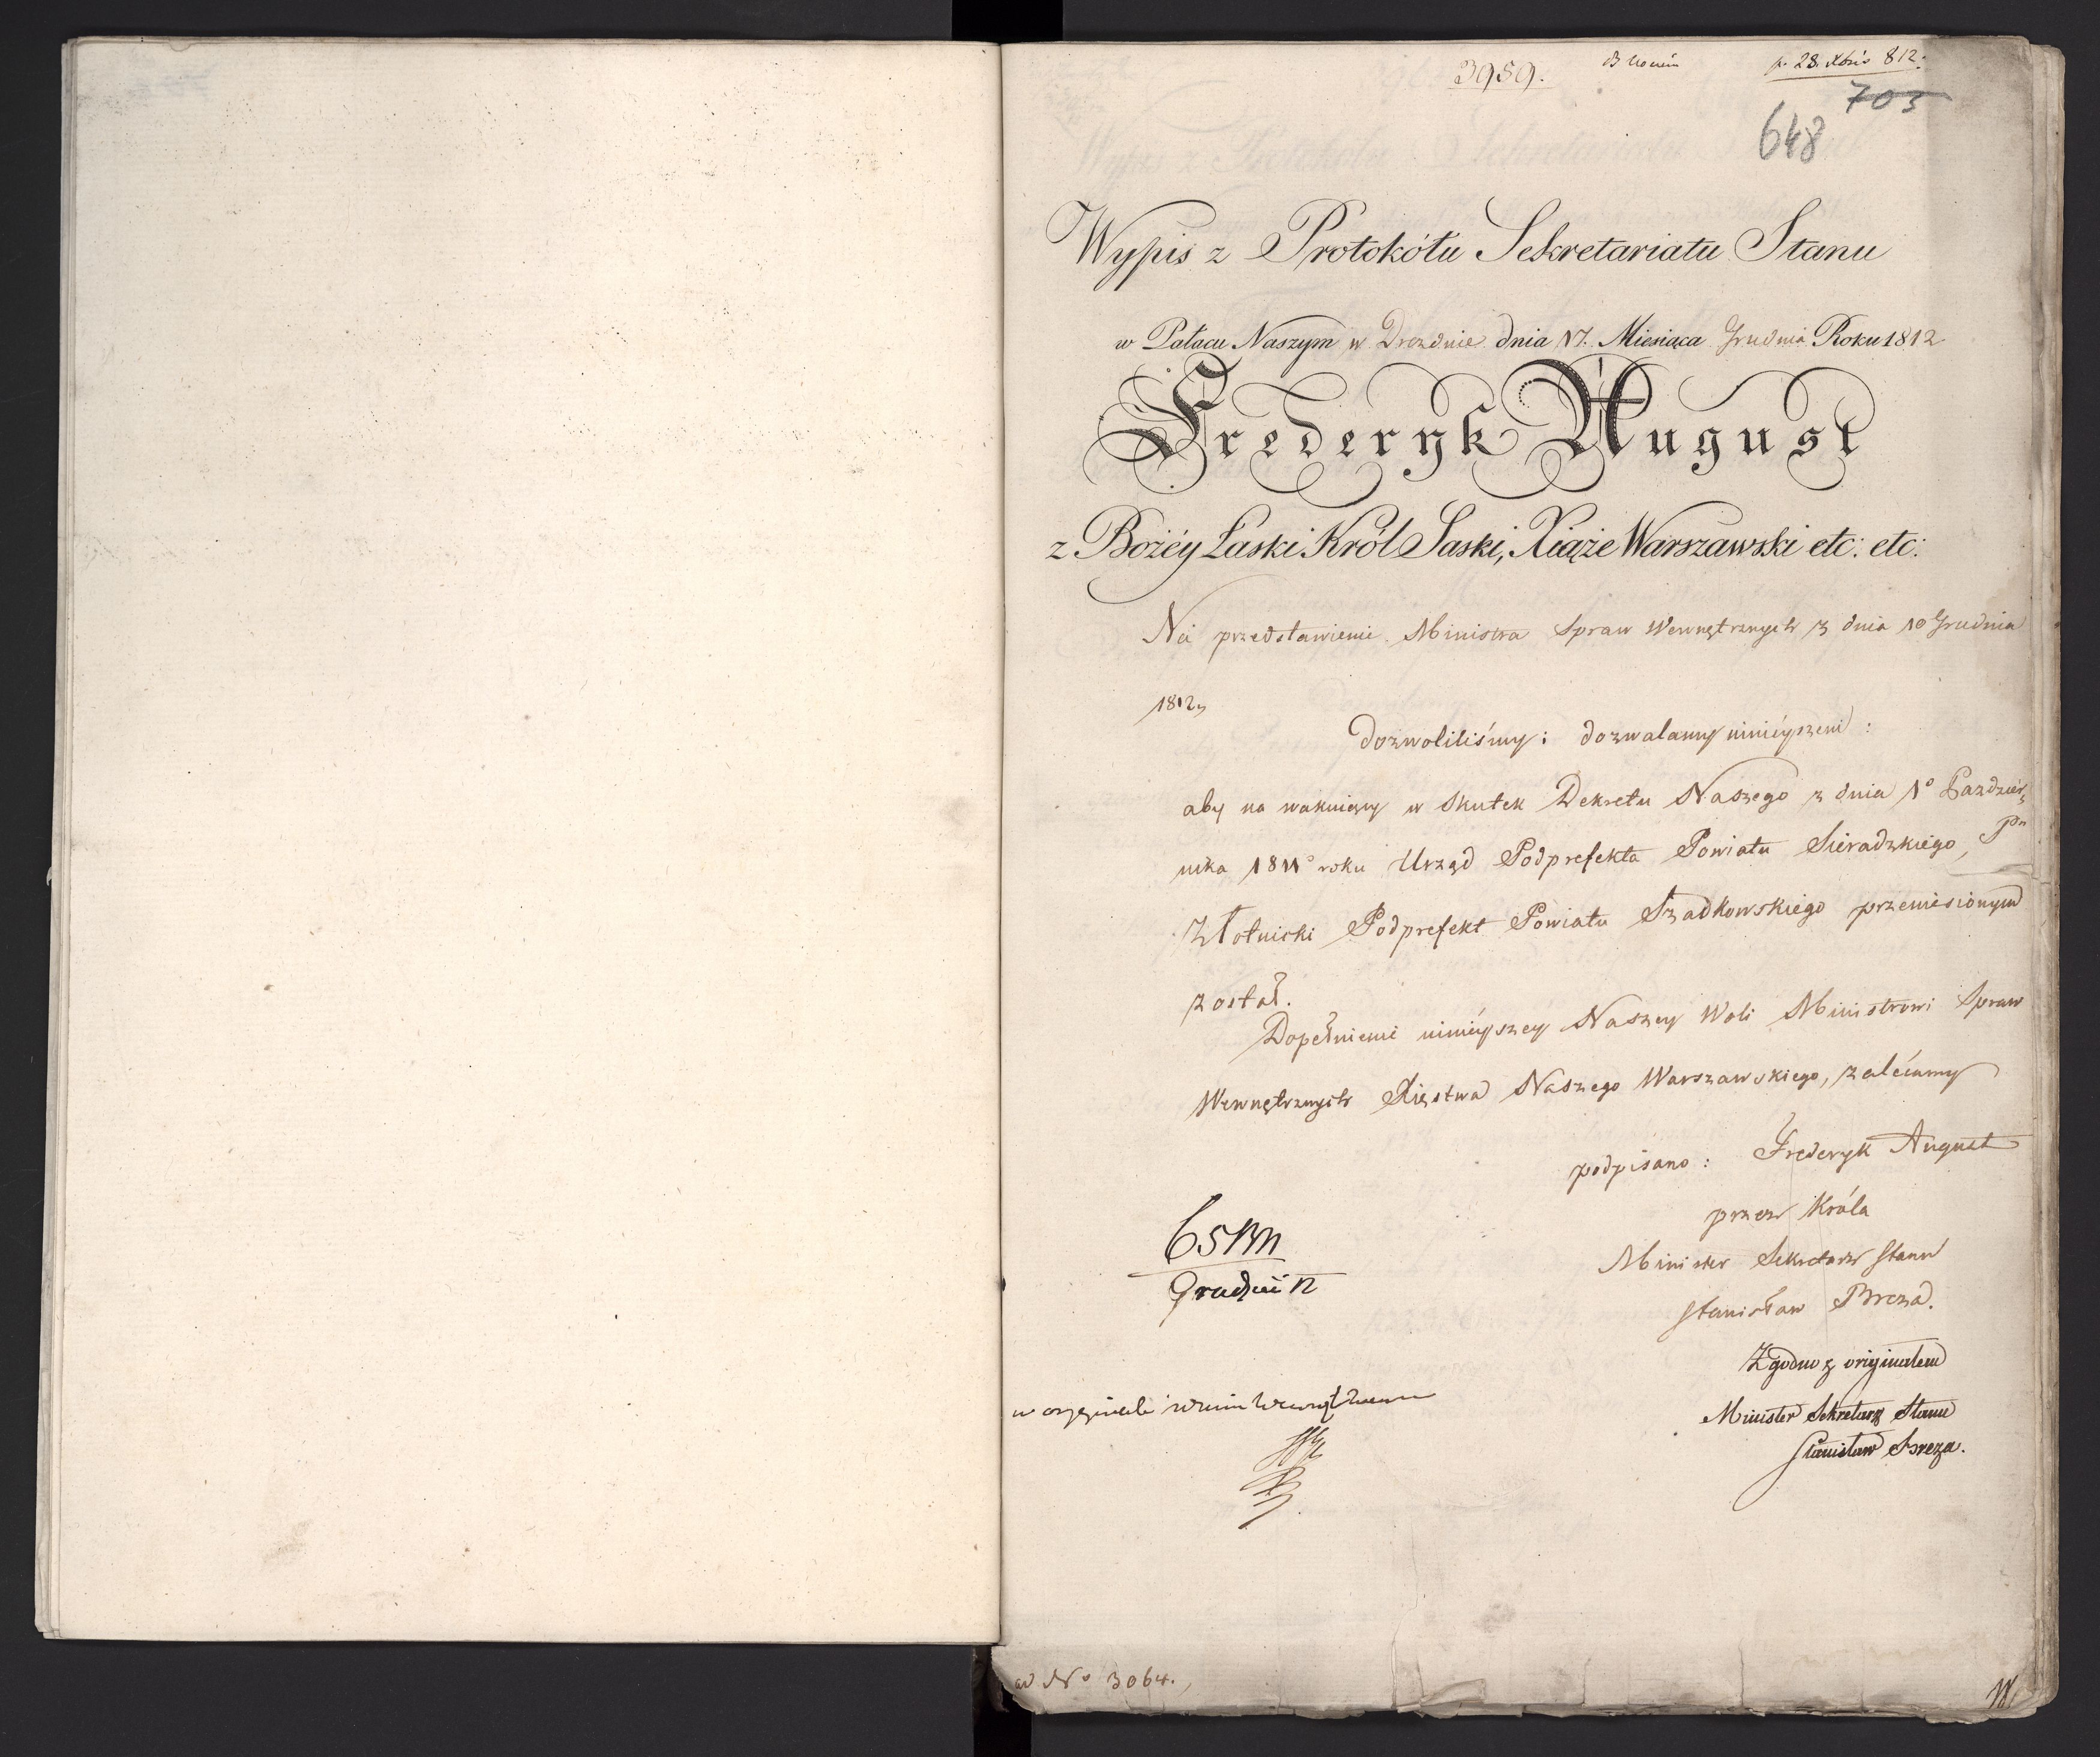 3959.
p. 28. Xbris 812.
703
648
Wypis z Protokółu Sekretariatu Stanu
w Pałacu Naszym w Dreznie dnia 17. Miesiąca Grudnia Roku 1812
Frederyk August
z Bożéy Łaski Król Saski, Xiąże Warszawski etc: etc:
Na przedstawienie Ministra Spraw Wewnętrznych z dnia 10 Grudnia
1812,
dozwoliliśmy i dozwalamy ninieyszem :
aby na wakuiący w skutek Dekretu Naszego z dnia 1° Paździer„
nika 1811° roku Urząd Podprefekta Powiatu Sieradzkiego, Pn
Złotnicki Podprefekt Powiatu Szadkowskiego przeniesionym
został.
Dopełnienie ninieyszey Naszey Woli Ministrowi Spraw
Wewnętrznych Xięstwa Naszego Warszawskiego, zalécamy
podpisano : Frederyk August
przez Króla
Minister Sekretarz Stanu
Stanisław Breza.
Zgodno z originałem
Minister Sekretarz Stanu
Stanisław Breza.
w oryginale
ad No 3064.